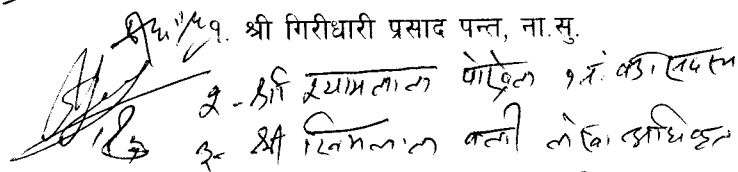 १. श्री गिरीधारी प्रसाद पन्त, ना.सु.
२- श्री श्यामलाल पोख्रेल १ नं. वडा सदस्य
३- श्री खिमलाल वली लेखा अधिकृत